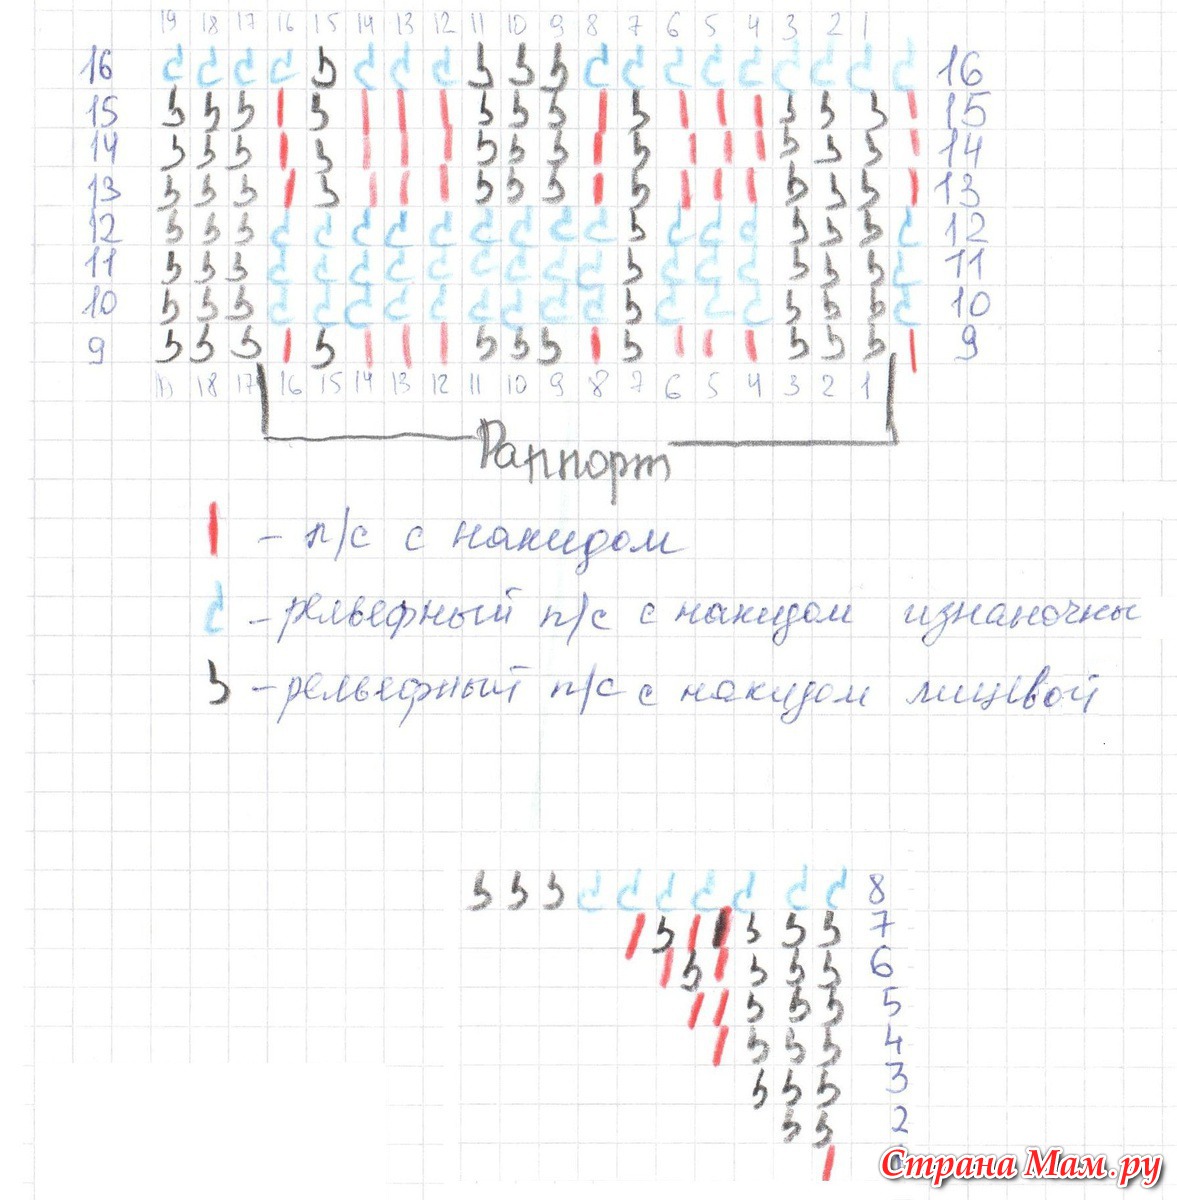 19 18 17 16 15 14 13 12 11 10 9 8 7 6 5 4 3 2 1
16 16
15 15
14 14
13 13
12 12
11 11
10 10
9 9
19 18 17 16 15 14 13 12 11 10 9 8 7 6 5 4 3 2 1
Раппорт
– п/с с накидом
– рельефный п/с с накидом изнаночны
– рельефный п/с с накидом лицевой
8
7
6
5
4
3
2
Страна Мам.ру